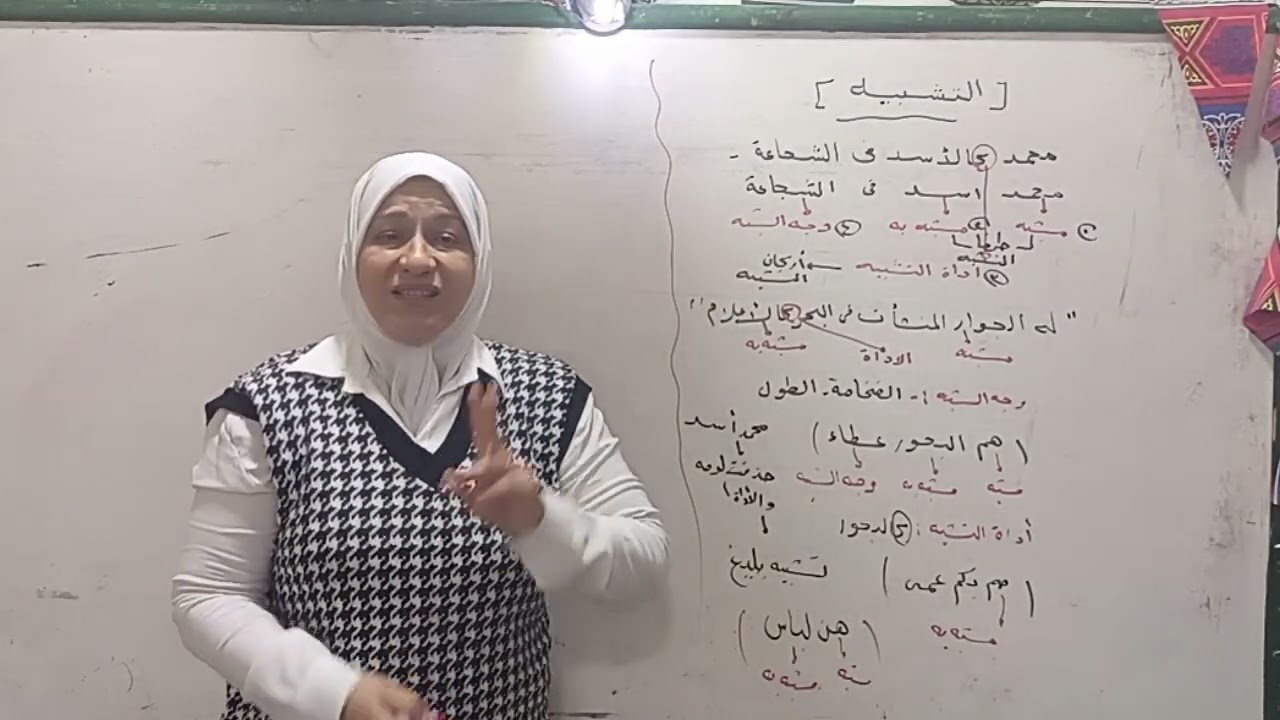 [ التشبيه ]
محمد كالأسد فى الشجاعة -
محمد اسد فى الشجاعة
① مشبه ② مشبه به ④ وجه الشبه
لـ طرفا
التشبيه
③ أداة التشبيه ← أركان
التشبيه
" له الجوار المنشأت فى البحر كالأعلام "
مشبه الاداة مشبه به
وجه الشبه :- الضخامة - الطول
( هم البحور عطاء )
محمد أسد
مشبه مشبه به وجه الشبه
حذفت
والأداة
أداة التشبيه : ك
( هم بكم عمى )
تشبيه بليغ
مشبه به
( هن لباس )
مشبه مشبه به